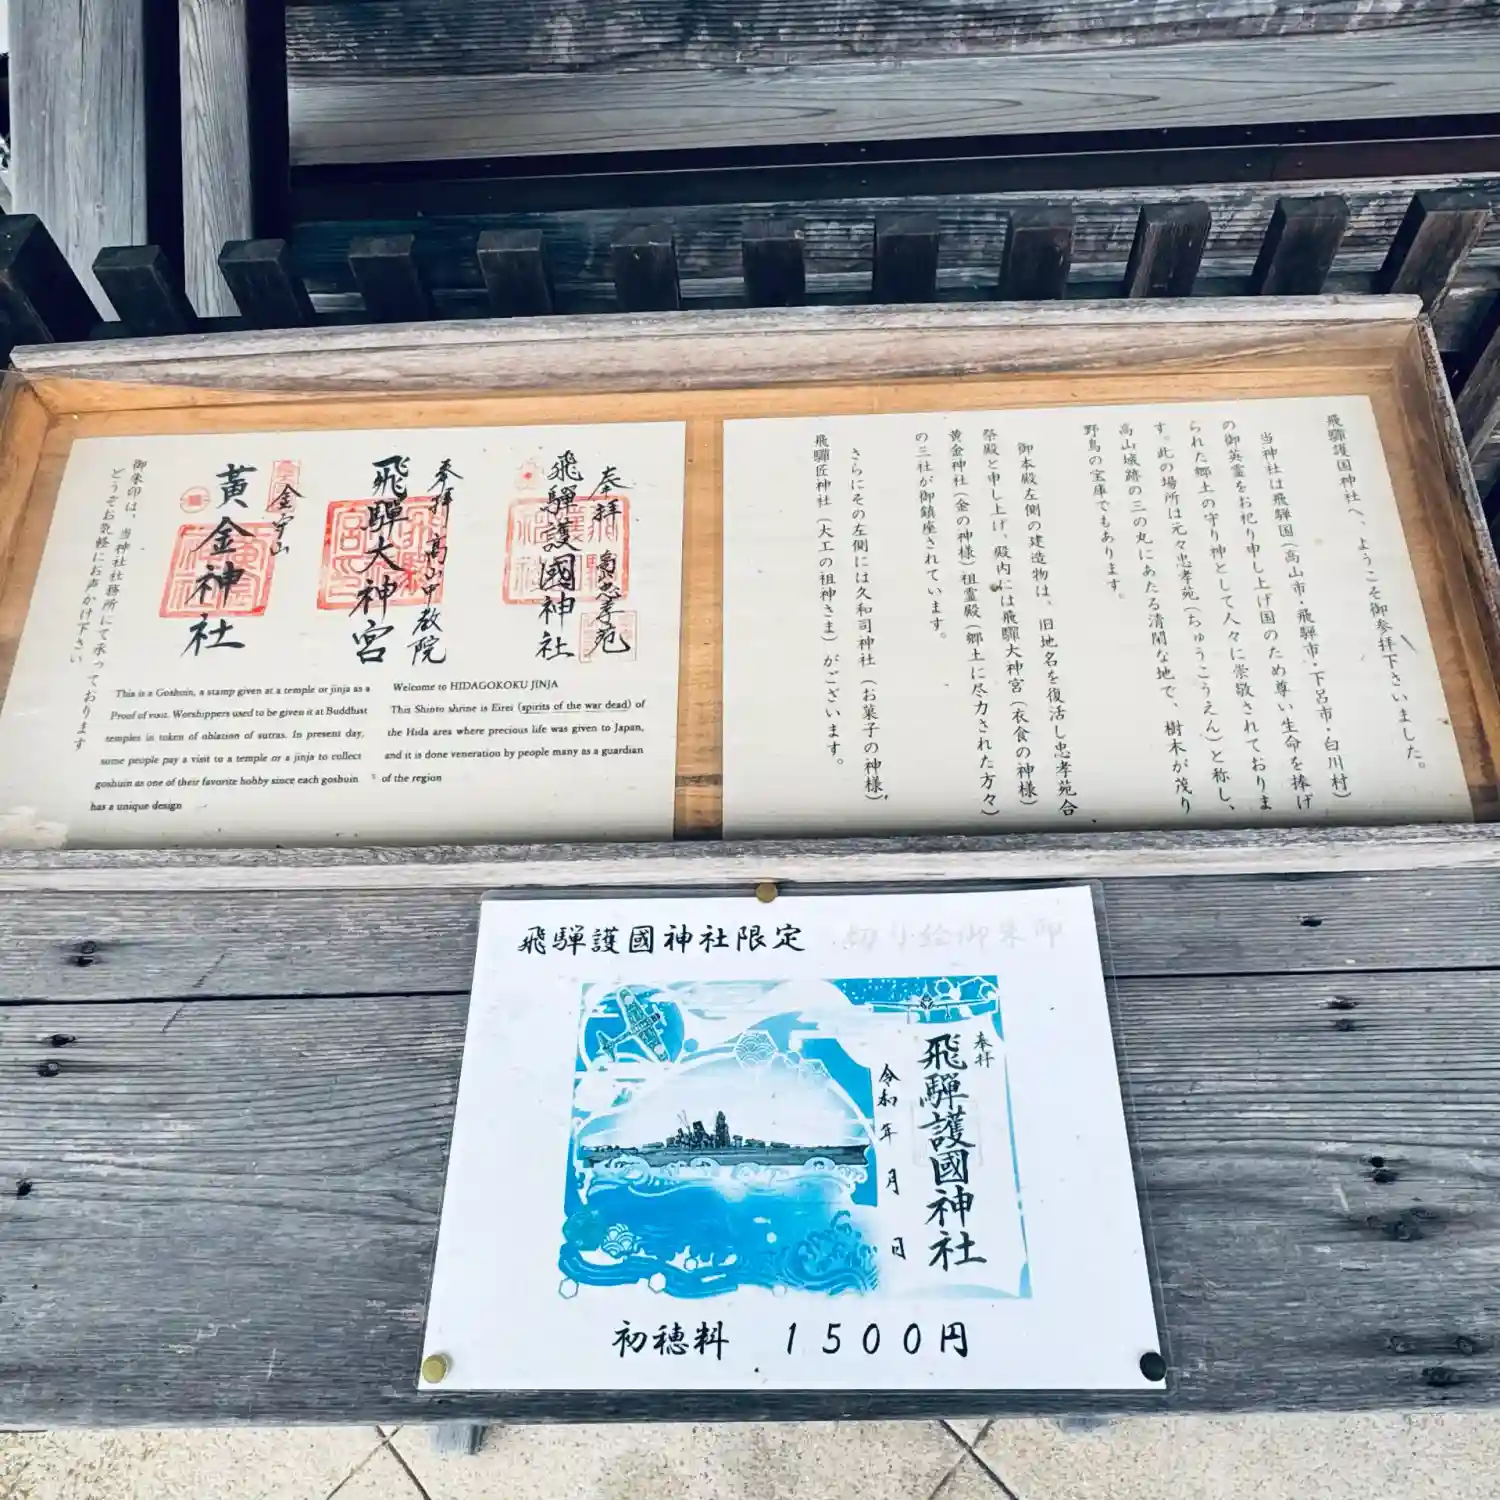 飛驒護国神社へ、ようこそ御参拝下さいました。
当神社は飛驒国(高山市・飛驒市・下呂市・白川村)
の御英霊をお祀り申し上げ国のため尊い生命を捧げ
られた郷土の守り神として人々に崇敬されておりま
す。此の場所は元々忠孝苑(ちゅうこうえん)と称し、
高山城跡の三の丸にあたる清閑な地で、樹木が茂り
野鳥の宝庫でもあります。
御本殿左側の建造物は、旧地名を復活し忠孝苑合
祭殿と申し上げ、殿内には飛驒大神宮(衣食の神様)
黄金神社(金の神様)祖霊殿(郷土に尽力された方々)
の三社が御鎮座されています。
さらにその左側には久和司神社(お菓子の神様)、
飛驒匠神社(大工の祖神さま)がございます。
奉拝
忠孝苑
飛驒護國神社
奉拝 高山中教院
飛驒大神宮
黃金神社
御朱印は、当神社社務所にて承っております
どうぞお気軽にお声かけ下さい
Welcome to HIDAGOKOKU JINJA
This Shinto shrine is Eirei (spirits of the war dead) of
the Hida area where precious life was given to Japan,
and it is done veneration by people many as a guardian
of the region
This is a Goshuin, a stamp given at a temple or jinja as a
Proof of visit. Worshippers used to be given it at Buddhist
temples in token of oblation of sutras. In present day,
some people pay a visit to a temple or a jinja to collect
goshuin as one of their favorite hobby since each goshuin
has a unique design
飛騨護國神社限定 切り絵御朱印
奉拝
飛騨護國神社
令和 年 月 日
初穂料 1500円